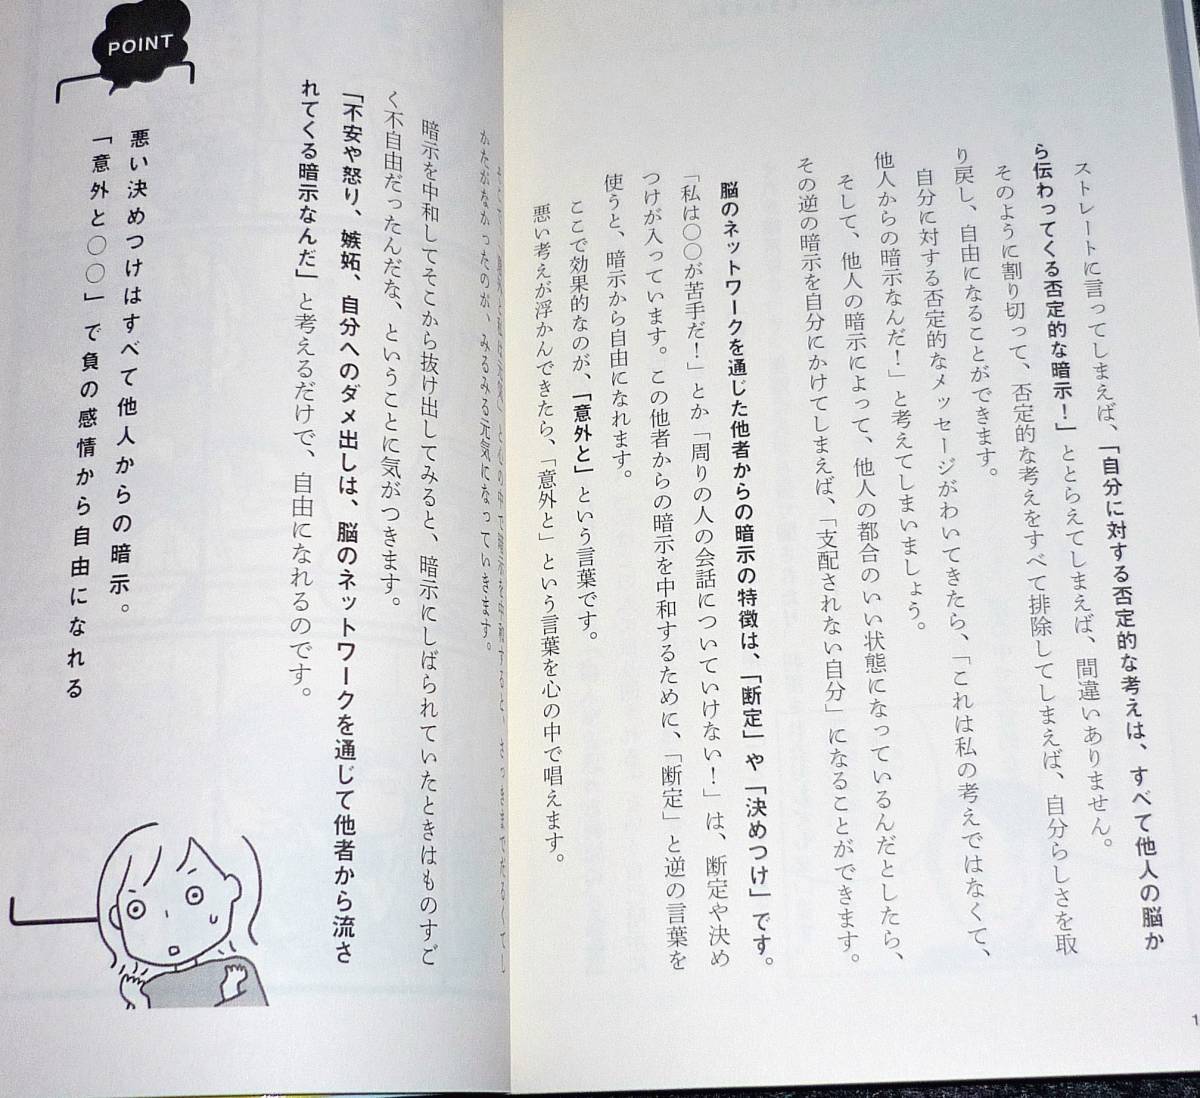 ストレートに言ってしまえば、「自分に対する否定的な考えは、すべて他人の脳か
ら伝わってくる否定的な暗示！」ととらえてしまえば、間違いありません。
そのように割り切って、否定的な考えをすべて排除してしまえば、自分らしさを取
り戻し、自由になることができます。
自分に対する否定的なメッセージがわいてきたら、「これは私の考えではなくて、
他人からの暗示なんだ！」と考えてしまいましょう。
そして、他人の暗示によって、他人の都合のいい状態になっているんだとしたら、
その逆の暗示を自分にかけてしまえば、「支配されない自分」になることができます。
脳のネットワークを通じた他者からの暗示の特徴は、「断定」や「決めつけ」です。
「私は〇〇が苦手だ！」とか「周りの人の会話についていけない！」は、断定や決め
つけが入っています。この他者からの暗示を中和するために、「断定」と逆の言葉を
使うと、暗示から自由になれます。
ここで効果的なのが、「意外と」という言葉です。
悪い考えが浮かんできたら、「意外と」という言葉を心の中で唱えます。
と心の中で暗示を中和すると、さっきまでだるくてし
かたがなかったのが、みるみる元気になっていきます。
暗示を中和してそこから抜け出してみると、暗示にしばられていたときはものすご
く不自由だったんだな、ということに気がつきます。
「不安や怒り、嫉妬、自分へのダメ出しは、脳のネットワークを通じて他者から流さ
れてくる暗示なんだ」と考えるだけで、自由になれるのです。
POINT
悪い決めつけはすべて他人からの暗示。
「意外と〇〇」で負の感情から自由になれる